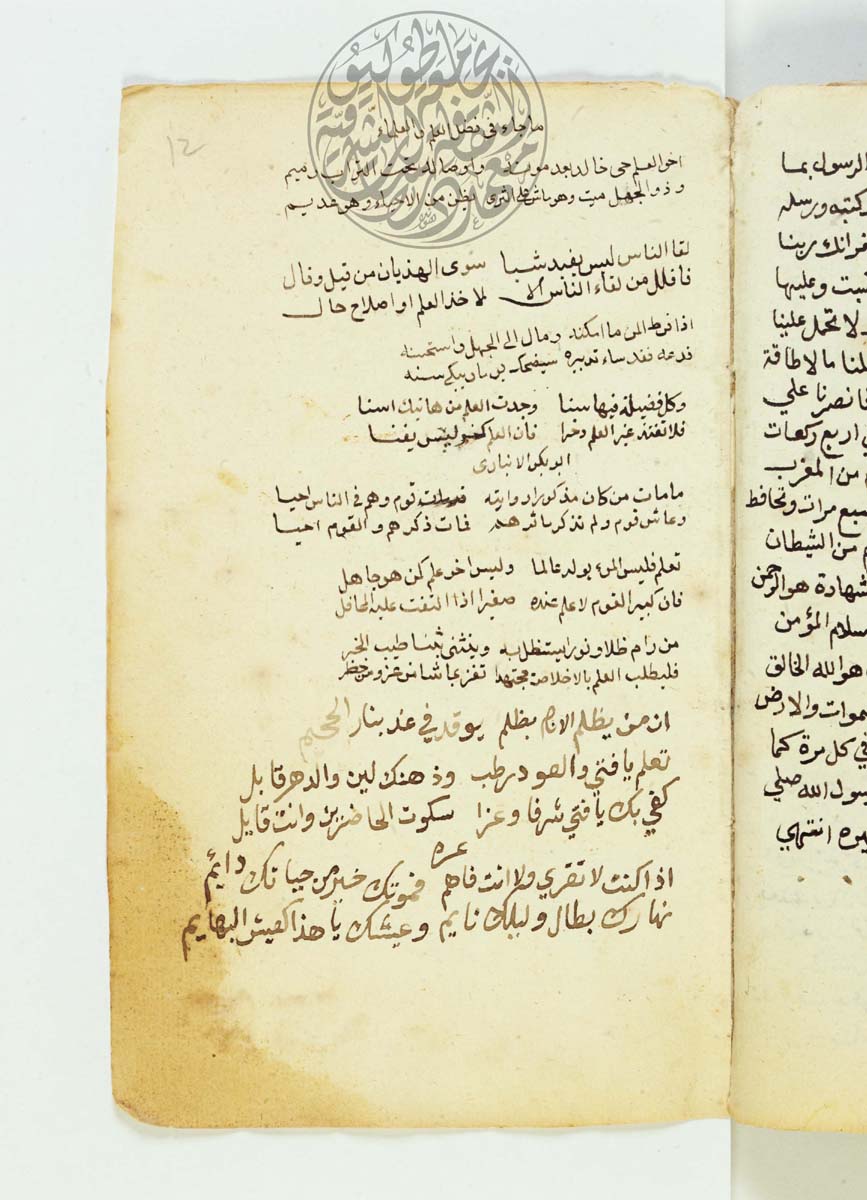 ما جاء في فضل العلم والعلماء
12
اخو العلم حي خالد بعد موته واوصاله تحت التراب رميم
وذو الجهل ميت وهو ماش على الثرى يظن من الاحياء وهو عديم
لقا الناس ليس يفيد شيا سوى الهذيان من قيل وقال
فاقلل من لقاء الناس الا لاخذ العلم او اصلاح حال
اذا فرط المرء ما امكنه ومال الى الجهل واستحسنه
فدعه فقد ساء تدبيره سيضحك يوما ويبكي سنه
وكل فضيلة فيها سنا وجدت العلم من هاتيك اسنا
فلا تعتد غير العلم ذخرا فان العلم كنز ليس يفنا
ابو بكر الانبارى
مامات من كان مذكورا روايته قدمات قوم وهم في الناس احيا
وعاش قوم ولم تذكر ماثرهم فمات ذكرهم والقوم احيا
تعلم فليس المرء يولد عالما وليس اخو علم كمن هو جاهل
فان كبير القوم لا علم عنده صغيرا اذا التفت عليه المحافل
من رام ظلا ونورا يستظل به وينثنى بثنا طيب الخبر
فليطلب العلم بالاخلاص مجتهدا
ان من يظلم الانام بظلم يوقد في غد بنار الجحيم
تعلم يا فتي والعود رطب وذهنك لين والدهر قابل
كفي بك يا فتي شرفا وعزا سكوت الحاضرين وانت قايل
غره
اذا كنت لا تقري ولا انت فاهم فموتك خير من حياتك دايم
نهارك بطال وليلك نايم وعيشك يا هذا كعيش البهايم
الرسول بما
وكتبه ورسله
غفرانك ربنا
كسبت وعليها
ولا تحمل علينا
تحملنا مالا طاقة
فانصرنا علي
اربع ركعات
من المغرب
سبع مرات وتحافظ
من الشيطان
الشهادة هو الرحمن
السلام المؤمن
هو الله الخالق
السموات والارض
في كل مرة كما
رسول الله صلي
انتهي